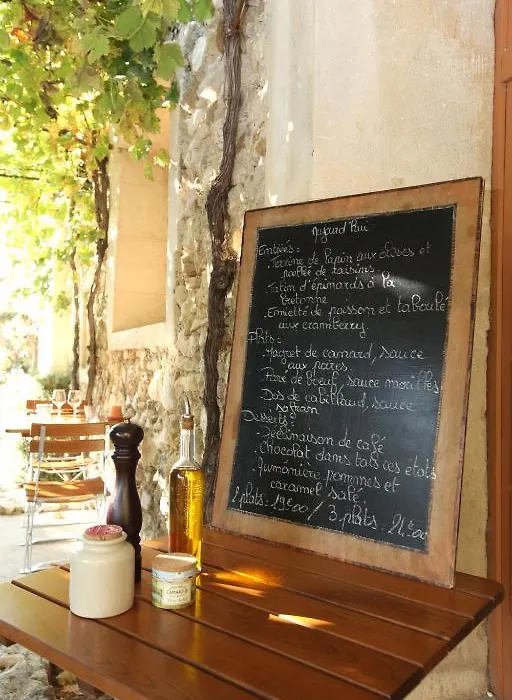 Aujourd'hui
Entrées:
- Terrine de lapin aux olives et
poêlée de raisins
- Tatin d'épinards à la
bretonne
- Emietté de poisson et taboulé
aux cramberry.
Plats:
- Magret de canard, sauce
aux poires.
- Pavé de boeuf, sauce morilles
- Dos de cabillaud, sauce
safran
Desserts:
- Déclinaison de café
- Chocolat dans tous ces états
- Aumônière pommes et
caramel salé.
2 plats: 19€00 / 3 plats: 24€00